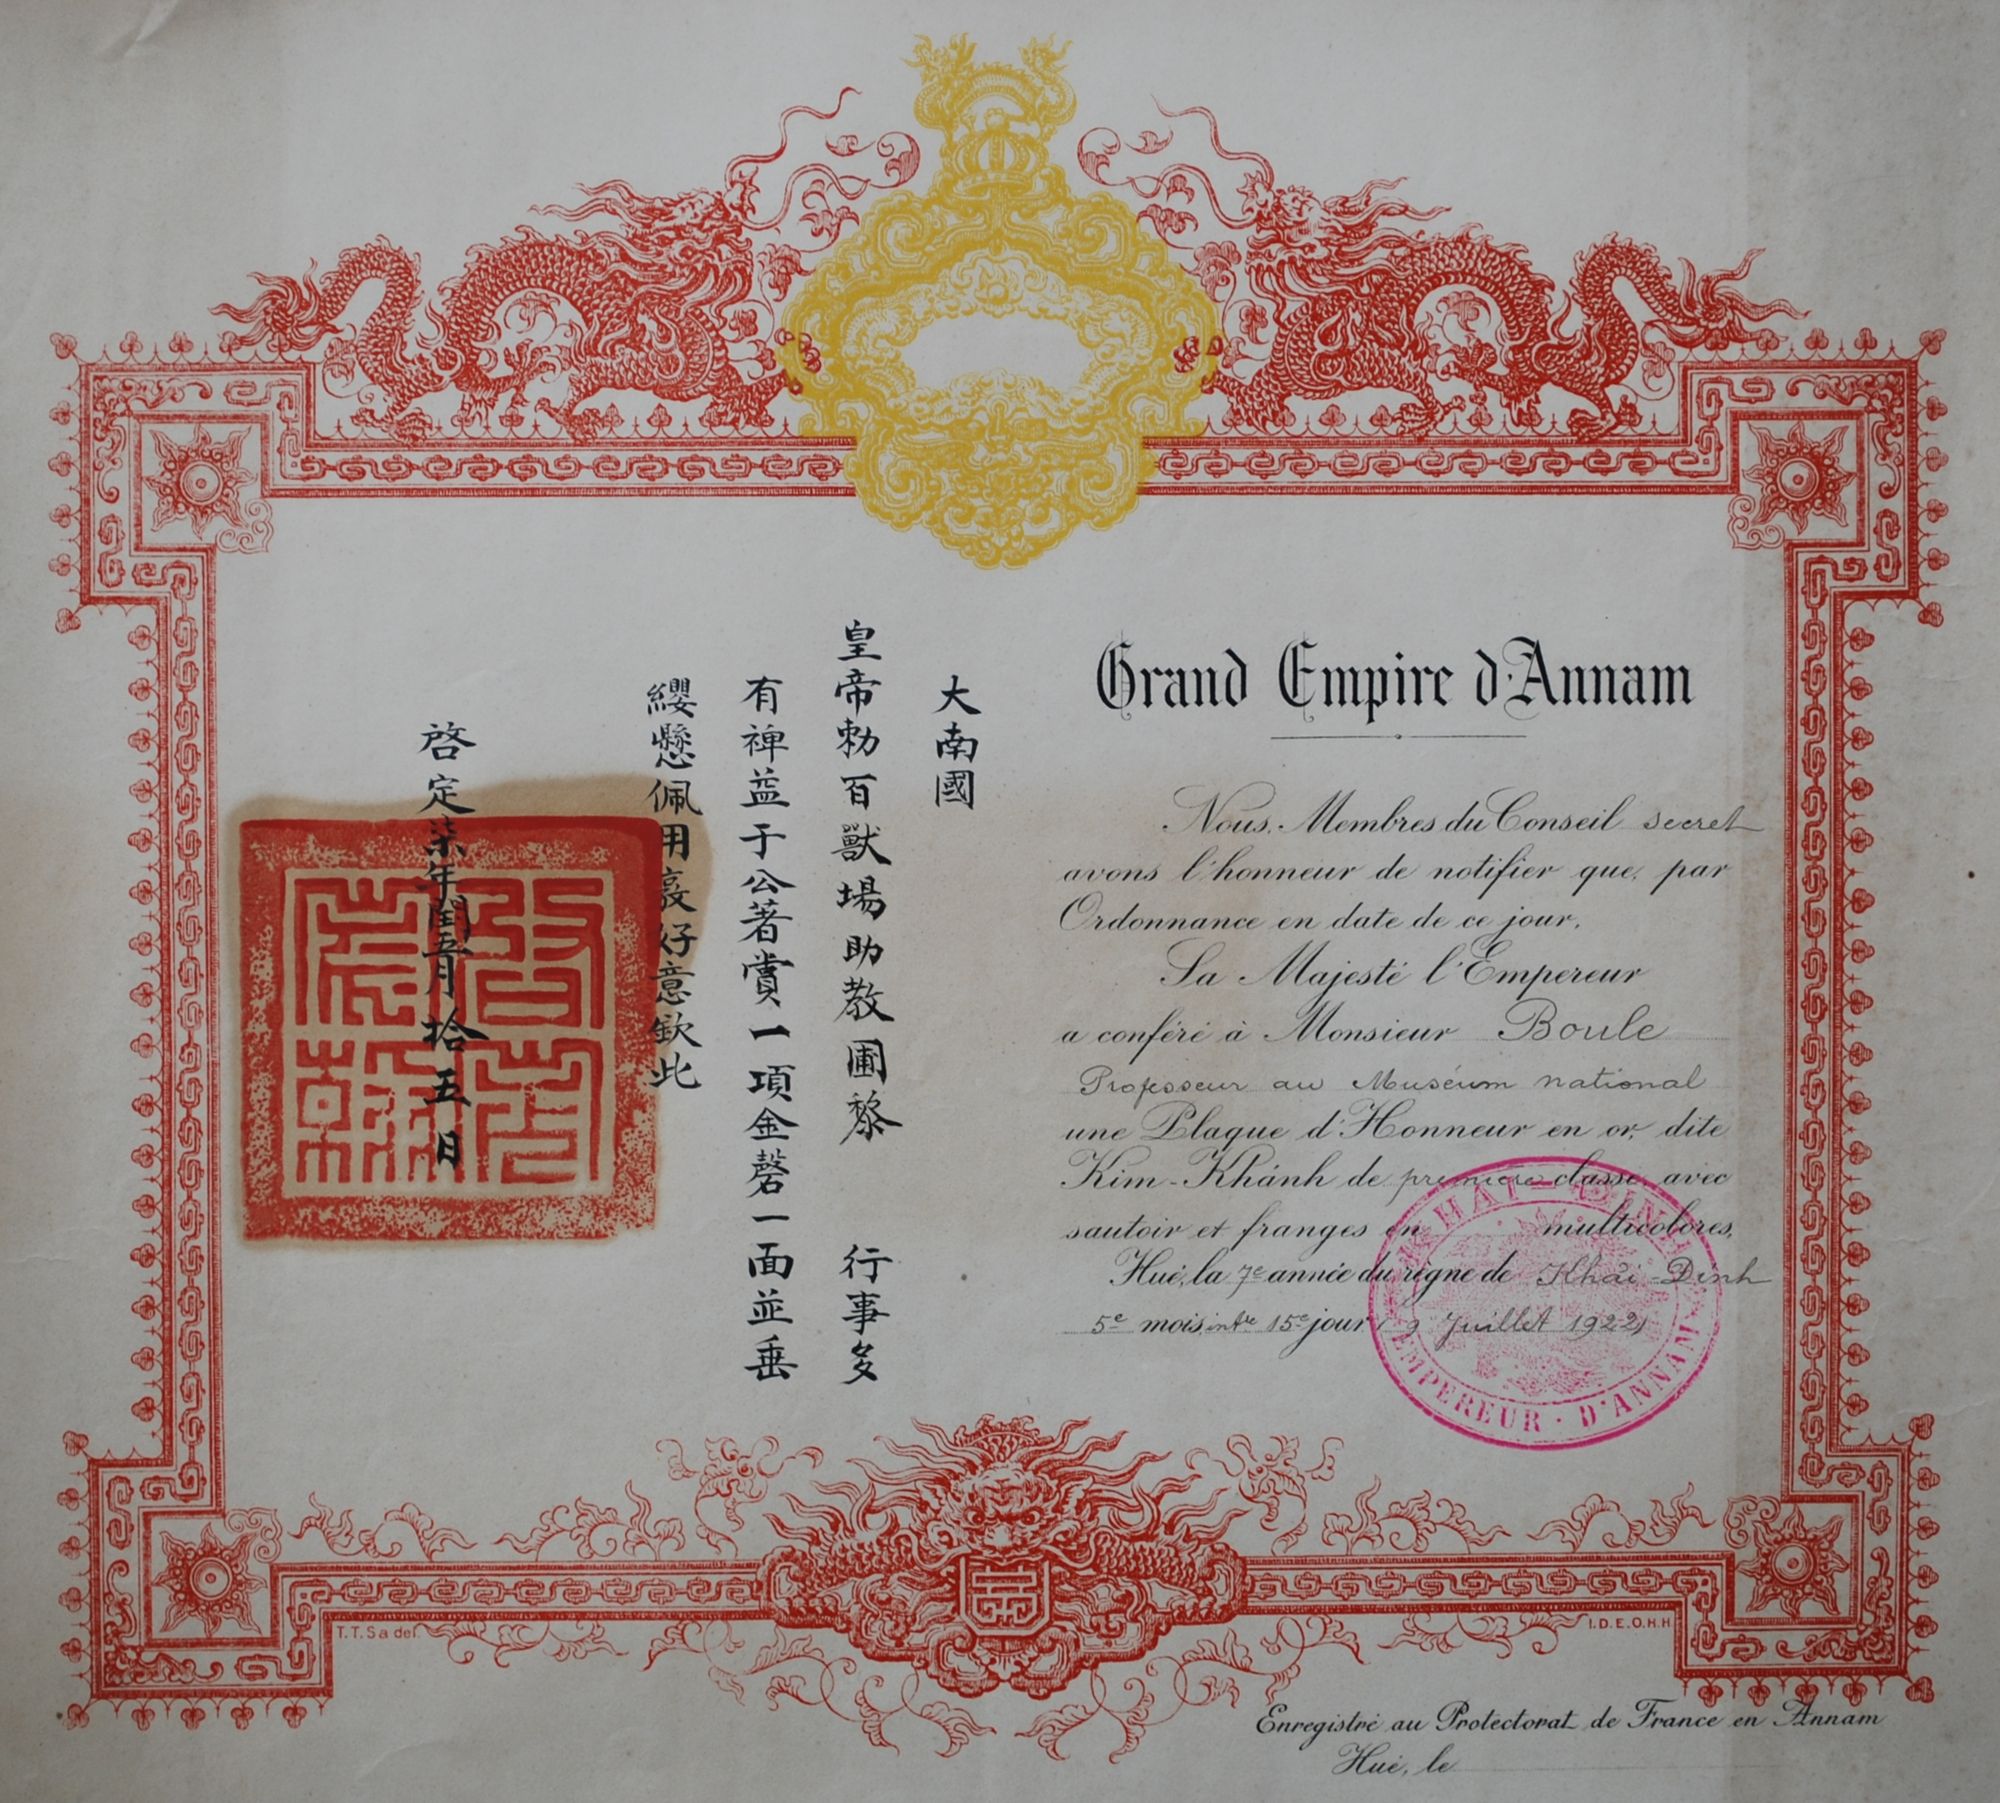 Grand Empire d'Annam
Nous, Membres du Conseil secret
avons l'honneur de notifier que, par
Ordonnance en date de ce jour,
Sa Majesté l'Empereur
a conféré à Monsieur Boule
Professeur au Muséum national
une Plaque d'Honneur en or, dite
Kim-Khánh de première classe, avec
sautoir et franges en multicolores,
Hué, la 7e année du règne de Khâi-Dinh
5e mois intre 15e jour (9 Juillet 1922)
KHAI-DINH
EMPEREUR · D'ANNAM
大南國
皇帝勅百獸場助教圃黎 行事多
有裨益于公著賞一項金磬一面並垂
纓懸佩用裦好意欽此
啓定柒年閏五月拾五日
T.T.Sa del.
I.D.E.O.H.H
Enregistré au Protectorat de France en Annam
Hué, le